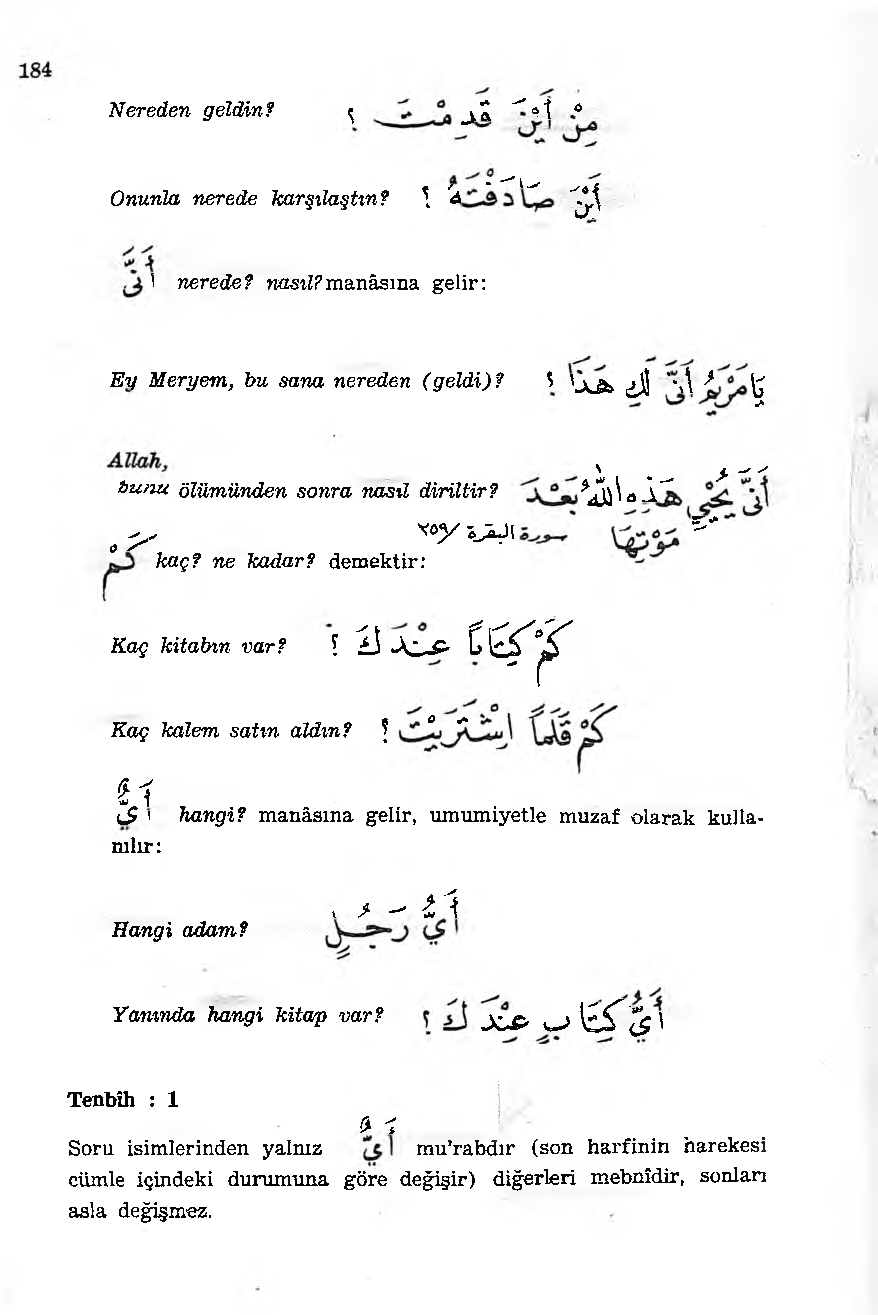 184
Nereden geldin? مِنْ أَيْنَ قَدِمْتَ ؟
Onunla nerede karşılaştın? أَيْنَ صَادَفْتَهُ ؟
أَنَّى nerede? nasıl? manâsına gelir:
Ey Meryem, bu sana nereden (geldi)? يَامَرْيَمُ أَنَّى لَكِ هَذَا ؟
Allah,
bunu ölümünden sonra nasıl diriltir? أَنَّى يُحْيِي هَذِهِ اللّٰهُ بَعْدَ
مَوْتِهَا سورة البقرة/٢٥٩
كَمْ kaç? ne kadar? demektir:
Kaç kitabın var? كَمْ كِتَاباً عِنْدَكَ ؟
Kaç kalem satın aldın? كَمْ قَلَماً اِشْتَرَيْتَ ؟
أَيٌّ hangi? manâsına gelir, umumiyetle muzaf olarak kulla-
nılır:
Hangi adam? أَيُّ رَجُلٍ
Yanında hangi kitap var? أَيُّ كِتَابٍ عِنْدَكَ ؟
Tenbîh : 1
Soru isimlerinden yalnız أَيٌّ mu'rabdır (son harfinin harekesi
cümle içindeki durumuna göre değişir) diğerleri mebnîdir, sonları
asla değişmez.